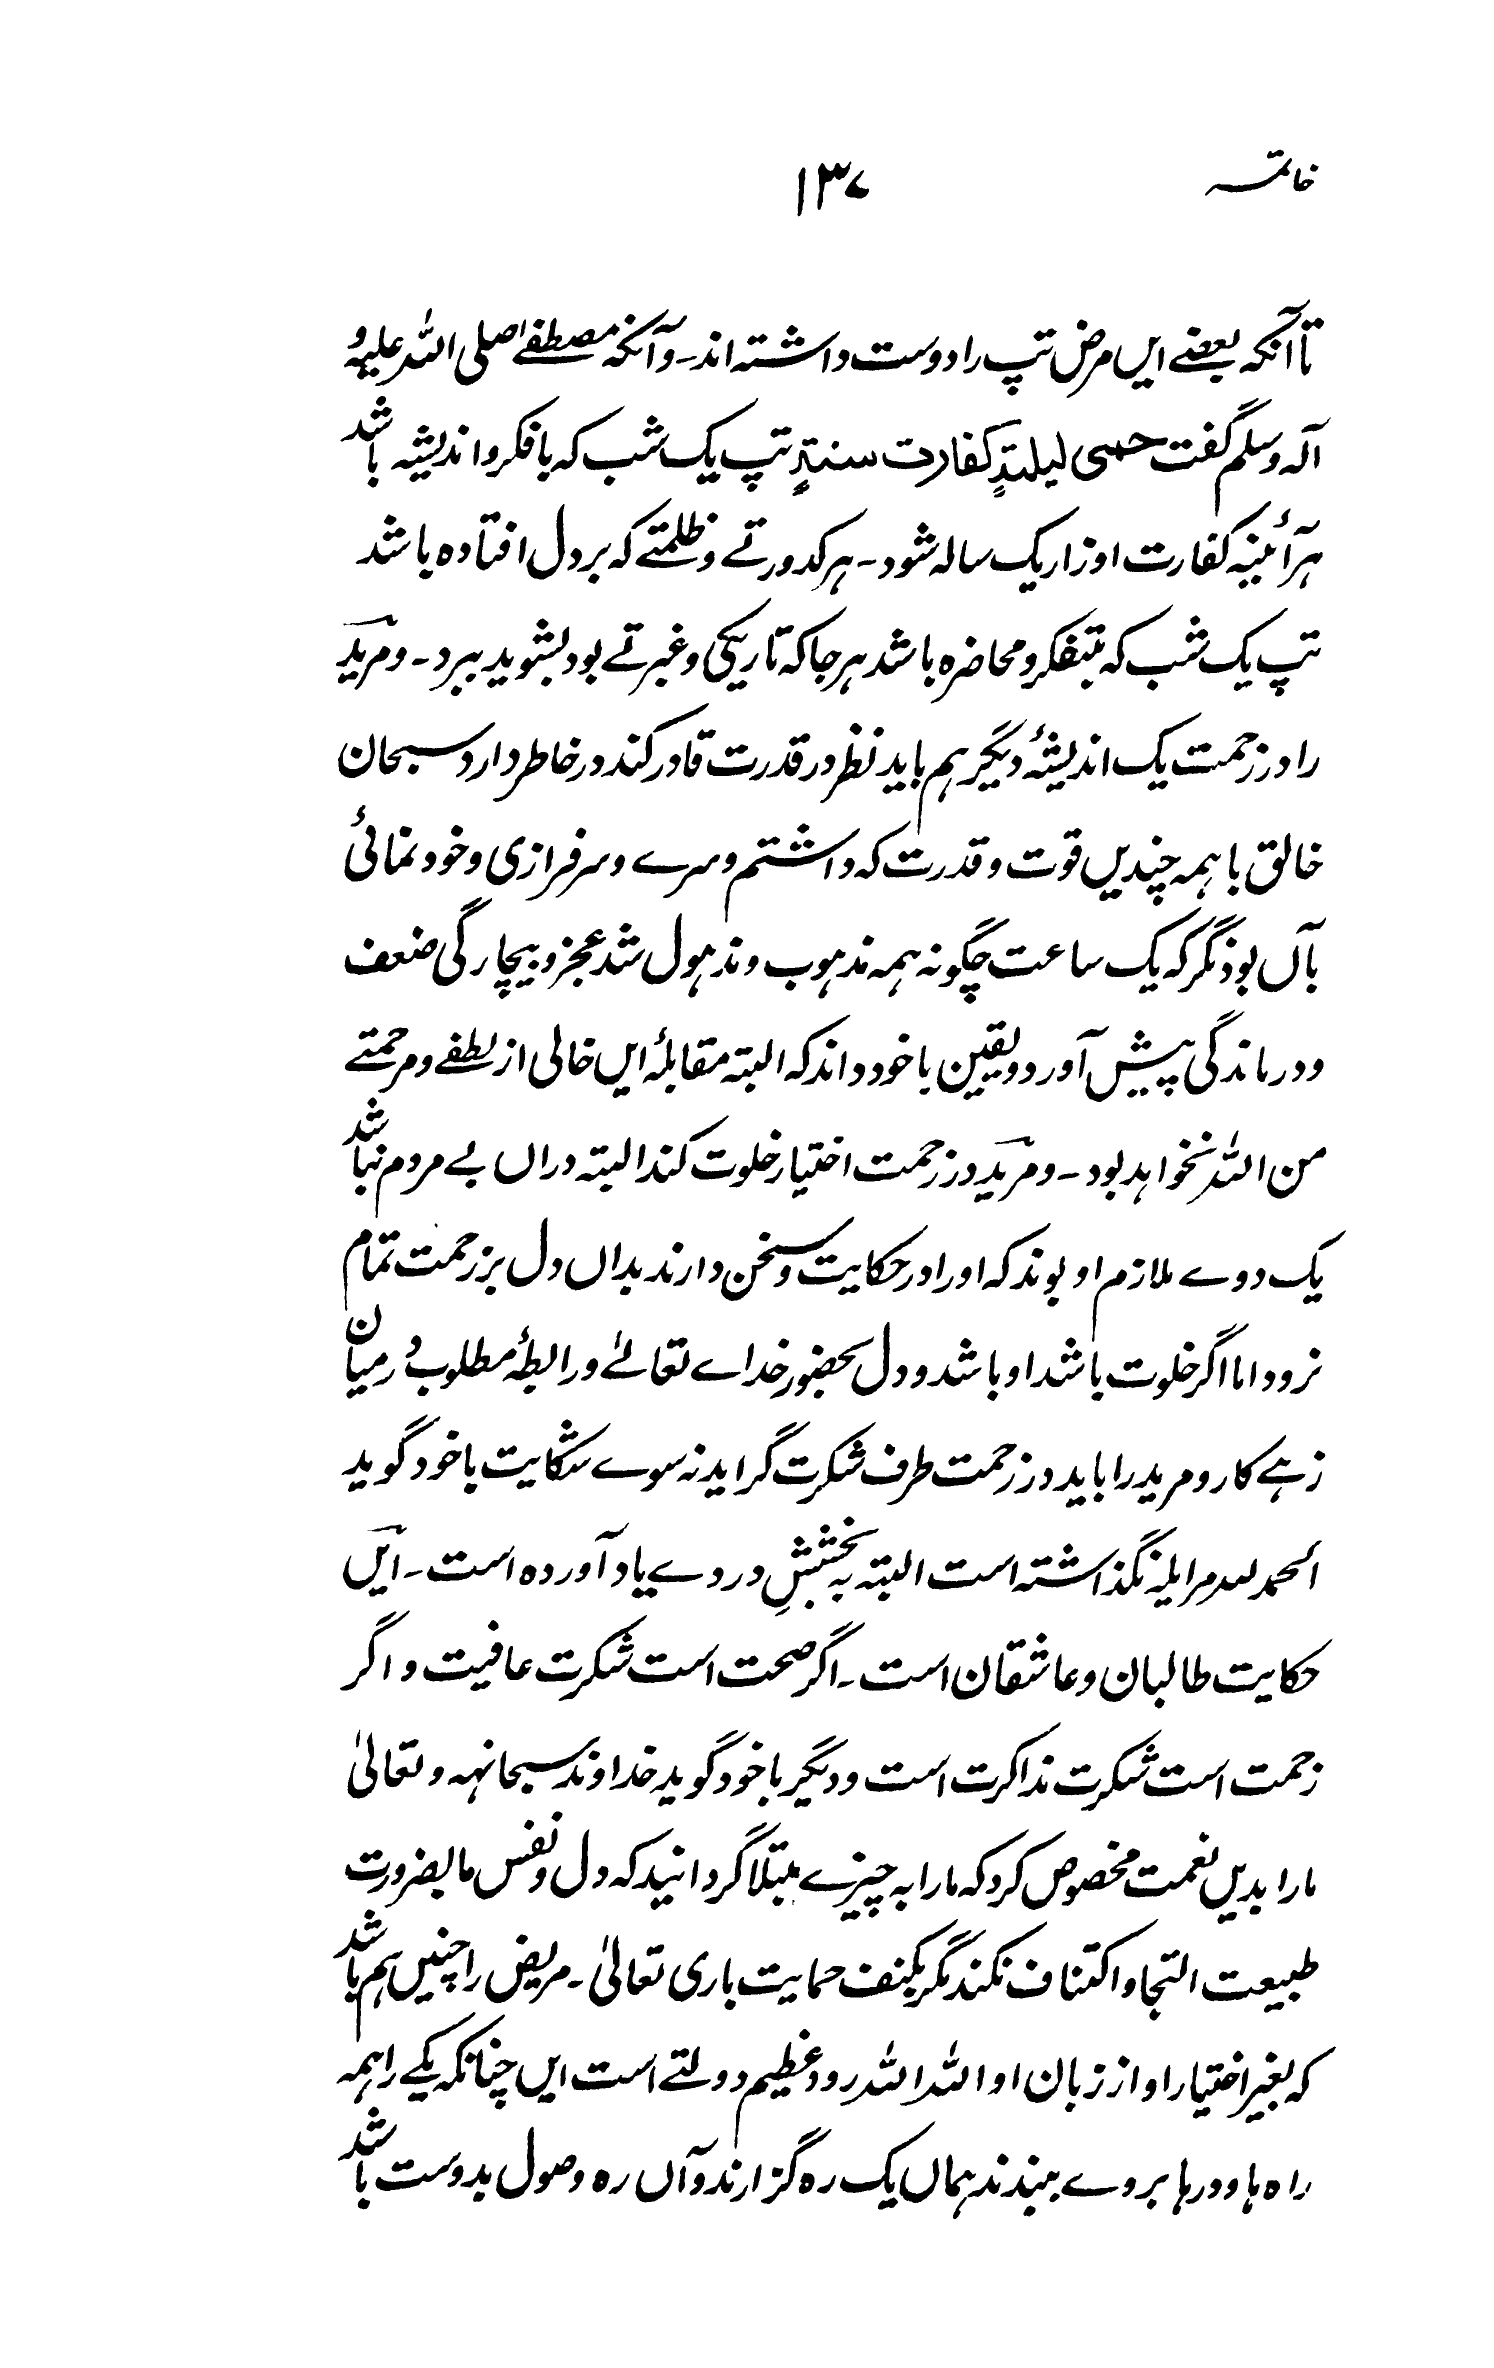 خاتمہ
۱۳۷
تا آنکه بعضے ایں مرض تپ را دوست داشته اند۔ و آنکه مصطفےٰ صلی اللہ علیہ و
آلہ وسلم گفت حمی لیلةٍ کفارت سنةٍ تپ یک شب که با فکر و اندیشه باشد
ہر آئینہ کفارت اوزار یک ساله شود۔ ہر کدورتے و ظلمتے که بر دل افتاده باشد
تپ یک شب که بتفکر و محاضره باشد ہر جا که تاریکی و غبرتے بود بشوید ببرد۔ و مرید
را در زحمت یک اندیشۂ دیگر ہم باید نظر در قدرت قادر کند در خاطر دارد سبحان
خالق با ہمہ چندیں قوت و قدرت که داشتم و سرے و سرفرازی و خود نمائی
بآں بود نگر که یک ساعت چگونه ہمہ مذہوب و مذہول شد عجز و بیچارگی ضعف
و درماندگی پیش آورد و یقین با خود داند که البته مقابلۂ ایں خالی از لطفے و مرحمتے
من اللہ نخواہد بود۔ و مرید در زحمت اختیار خلوت کند البته دراں بے مردم نباشد
یک دوے ملازم او بوند که او را در حکایت و سخن دارند بداں دل بر زحمت تمام
نرود اما اگر خلوت باشد او باشد و دل بحضور خداے تعالےٰ و رابطۂ مطلوب درمیان
زہے کار و مرید را باید در زحمت طرف شکرت گراید نہ سوے شکایت با خود گوید
الحمد للہ مرا یلہ نگذاشته است البته بہ بخششِ دردے یاد آورده است۔ ایں
حکایت طالبان و عاشقان است۔ اگر صحت است شکرت عافیت و اگر
زحمت است شکرت مذاکرت است و دیگر با خود گوید خداوند سبحانہ و تعالیٰ
ما را بدیں نعمت مخصوص کرد که ما را بہ چیزے مبتلا گردانید که دل و نفس ما بضرورت
طبیعت التجا و اکتناف نکند مگر بکنف حمایت باری تعالیٰ۔ مریض را چنیں ہم باشد
که بغیر اختیار او از زبان او اللہ اللہ رود عظیم دولتے است ایں چنانکه یکے را ہمہ
راه ہا و درہا بروے ببندند ہماں یک ره گزارند و آں ره وصول بدوست باشد